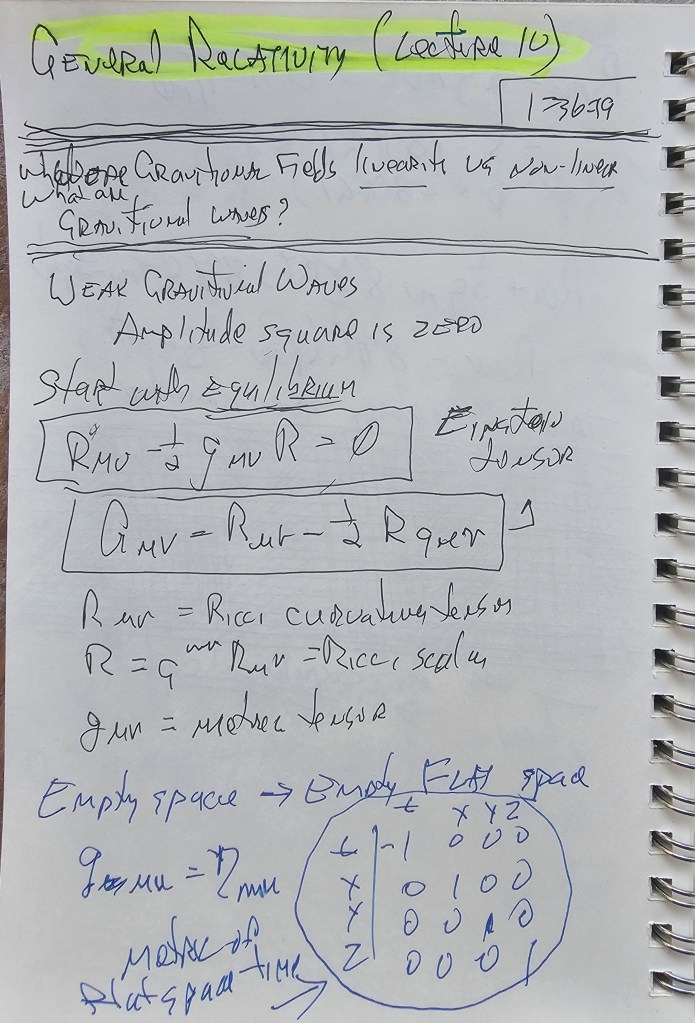 GENERAL RELATIVITY (LECTURE 10)
What are Gravitional Fields linearite vs non-linear
What are
GRAVITIONAL WAVES?
WEAK GRAVITIONAL WAVES
Amplitude square is ZERO
Start with EQUILIBRIUM
Rμν - 1/2 gμν R = 0
EINSTEIN
tensor
Gμν = Rμν - 1/2 R gμν
Rμν = Ricci curvature tensor
R = g^μν Rμν = Ricci scalar
gμν = metric tensor
Empty space → Empty FLAT space
t x y z
t -1 0 0 0
x 0 1 0 0
y 0 0 1 0
z 0 0 0 1
gμν = ημν
metric of
flat space time